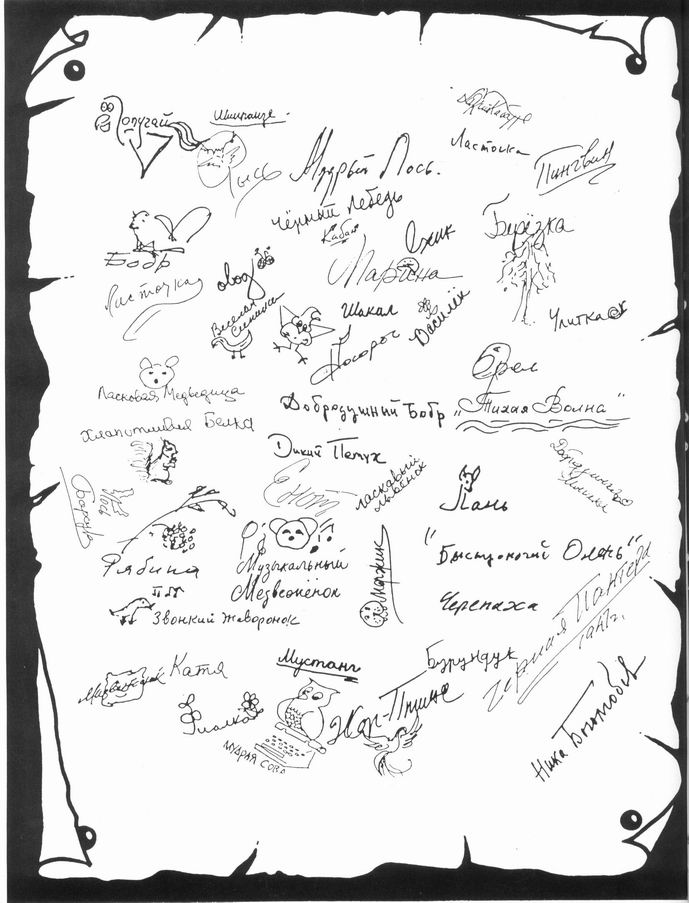 Попугай
Шимпанзе
Рысь
Мудрый Лось.
Ласточка
Пингвин
Чёрный Лебедь
Кабан
Ёжик
Берёзка
Бобр
Ласточка
овод
Марина
Весёлая
Синичка
Шакал
Носорог
Василёк
Улитка
Орел
Ласковая Медведица
Добродушный Бобр
„Тихая Волна"
Хлопотливая Белка
Дикий Петух
Енот
ласковый
львёнок
Лань
Барсук
Лось
Рябина
Музыкальный
Медвежонок
Моржик
"Быстроногий Олень"
Черепаха
Звонкий Жаворонок
Чёрная Пантера
Катя
Мустанг
Бурундук
Фиалка
Мудрая сова
Жар-Птица
Ника